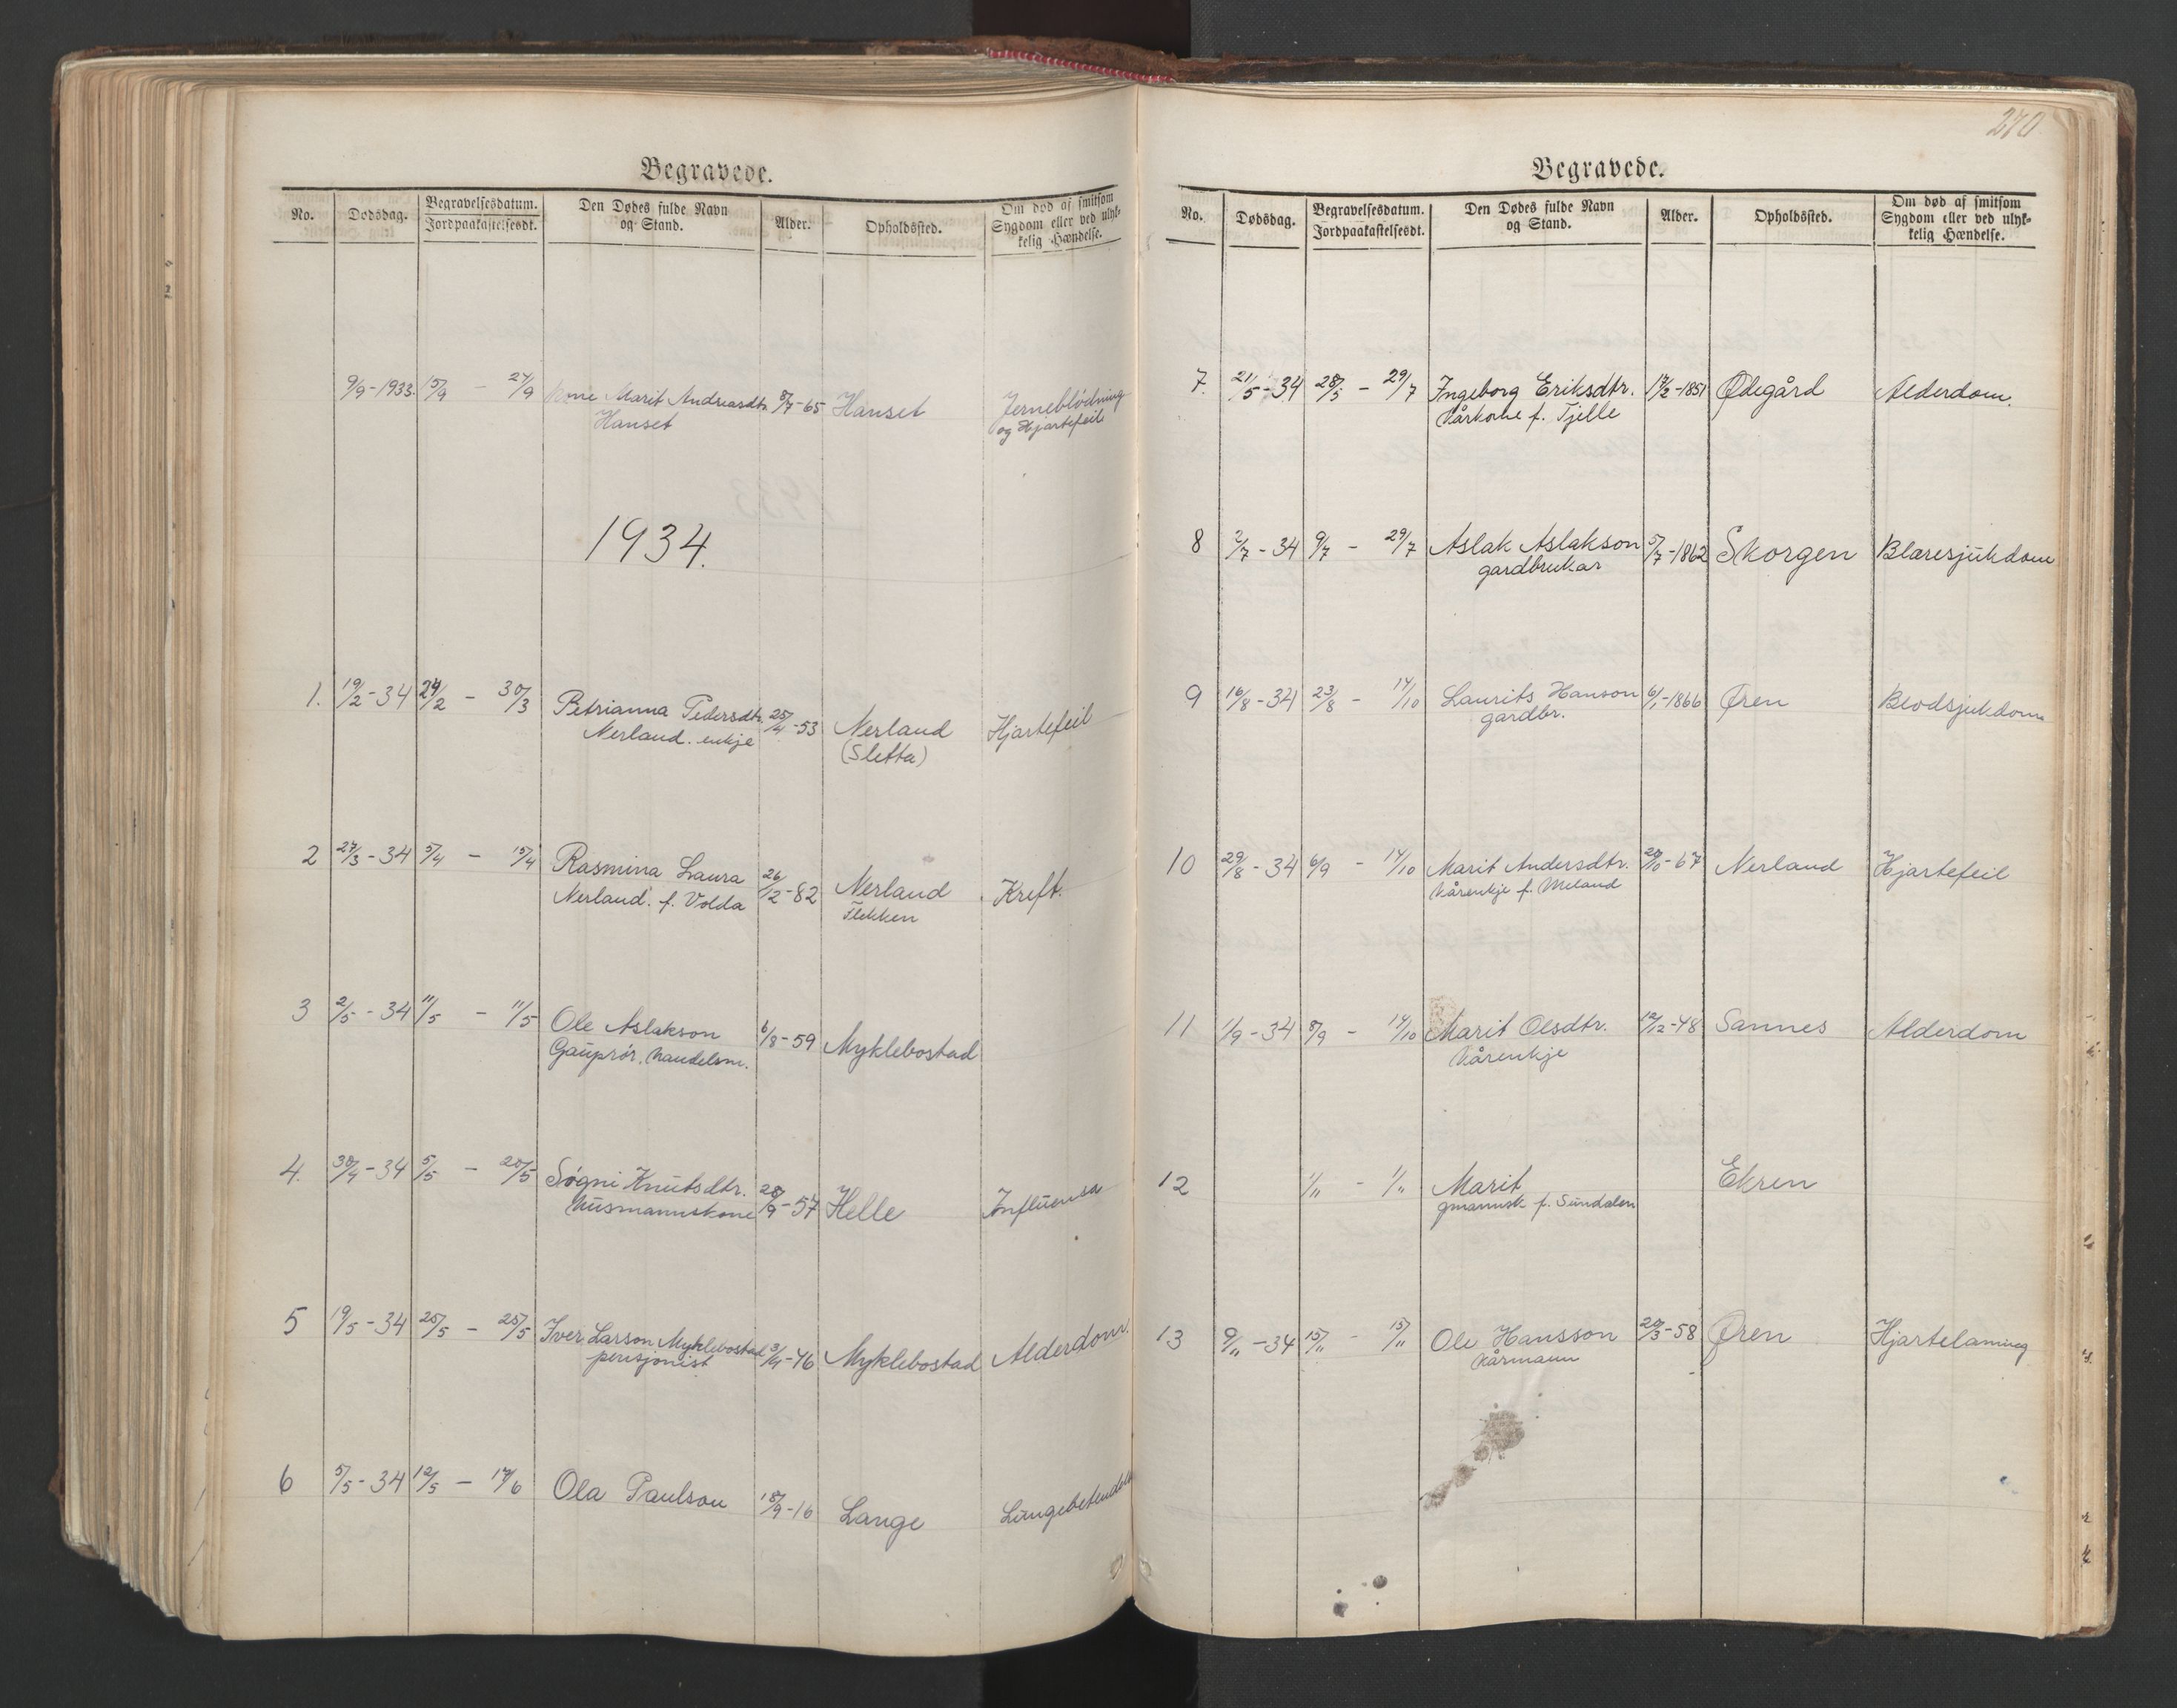 Begravede.
No. Dødsdag. Begravelsesdatum. Jordpaakastelsesdt. Den Dødes fulde Navn og Stand. Alder. Opholdssted. Om død af smitsom Sygdom eller ved ulykkelig Hændelse.
9/9-1933. 15/9 - 24/9 Marit Andreasdtr. 8/7-65 Hanset Jerneblødning
Hanset og Hjartefeil
1934.
1. 19/2-34 24/2 - 30/3 Petrianna Pedersdtr. 25/4-53 Nerland Hjartefeil
Nerland. enkje (Sletta)
2 27/3-34 5/4 - 15/4 Rasmina Laura 26/12-82 Nerland Kreft.
Nerland. f. Volda Flekken
3 2/5-34 11/5 - 11/5 Ole Aslakson 6/8-59 Myklebostad
Gauprør. handelsm.
4. 30/4-34 5/5 - 20/5 Søgni Knutsdtr. 28/9-57 Helle Influensa
husmannskone
5 19/5-34 25/5 - 25/5 Iver Larson Myklebostad 3/4-46 Myklebostad Alderdom.
pensjonist
6 5/5-34 12/5 - 17/6 Ola Paulson 18/9-16 Lange
270
Begravede.
No. Dødsdag. Begravelsesdatum. Jordpaakastelsesdt. Den Dødes fulde Navn og Stand. Alder. Opholdssted. Om død af smitsom Sygdom eller ved ulykkelig Hændelse.
7. 21/5-34 28/5 - 29/7 Ingeborg Eriksdtr. 17/2-1851 Ødegård Alderdom.
Kårkone f. Tjelle
8 2/7-34 9/7 - 29/7 Aslak Aslakson 5/7-1862 Skorgen Blæresjukdom
gardbrukar
9 16/8-34 23/8 - 14/10 Laurits Hanson 6/1-1866 Øren Blodsjukdom
gardbr.
10 29/8-34 6/9 - 14/10 Marit Andersdtr. 20/10-67 Nerland Hjartefeil
Kårenkje f. Meland
11 1/9-34 8/9 - 14/10 Marit Olsdtr. 12/12-48 Sannes Alderdom
Kårenkje
12 1/11 - 1/11 Marit Ekren
gmannsk f. Sundalen
13 9/11-34 15/11 - 15/11 Ole Hansson 20/3-58 Øren Hjartelaming
Kårmann